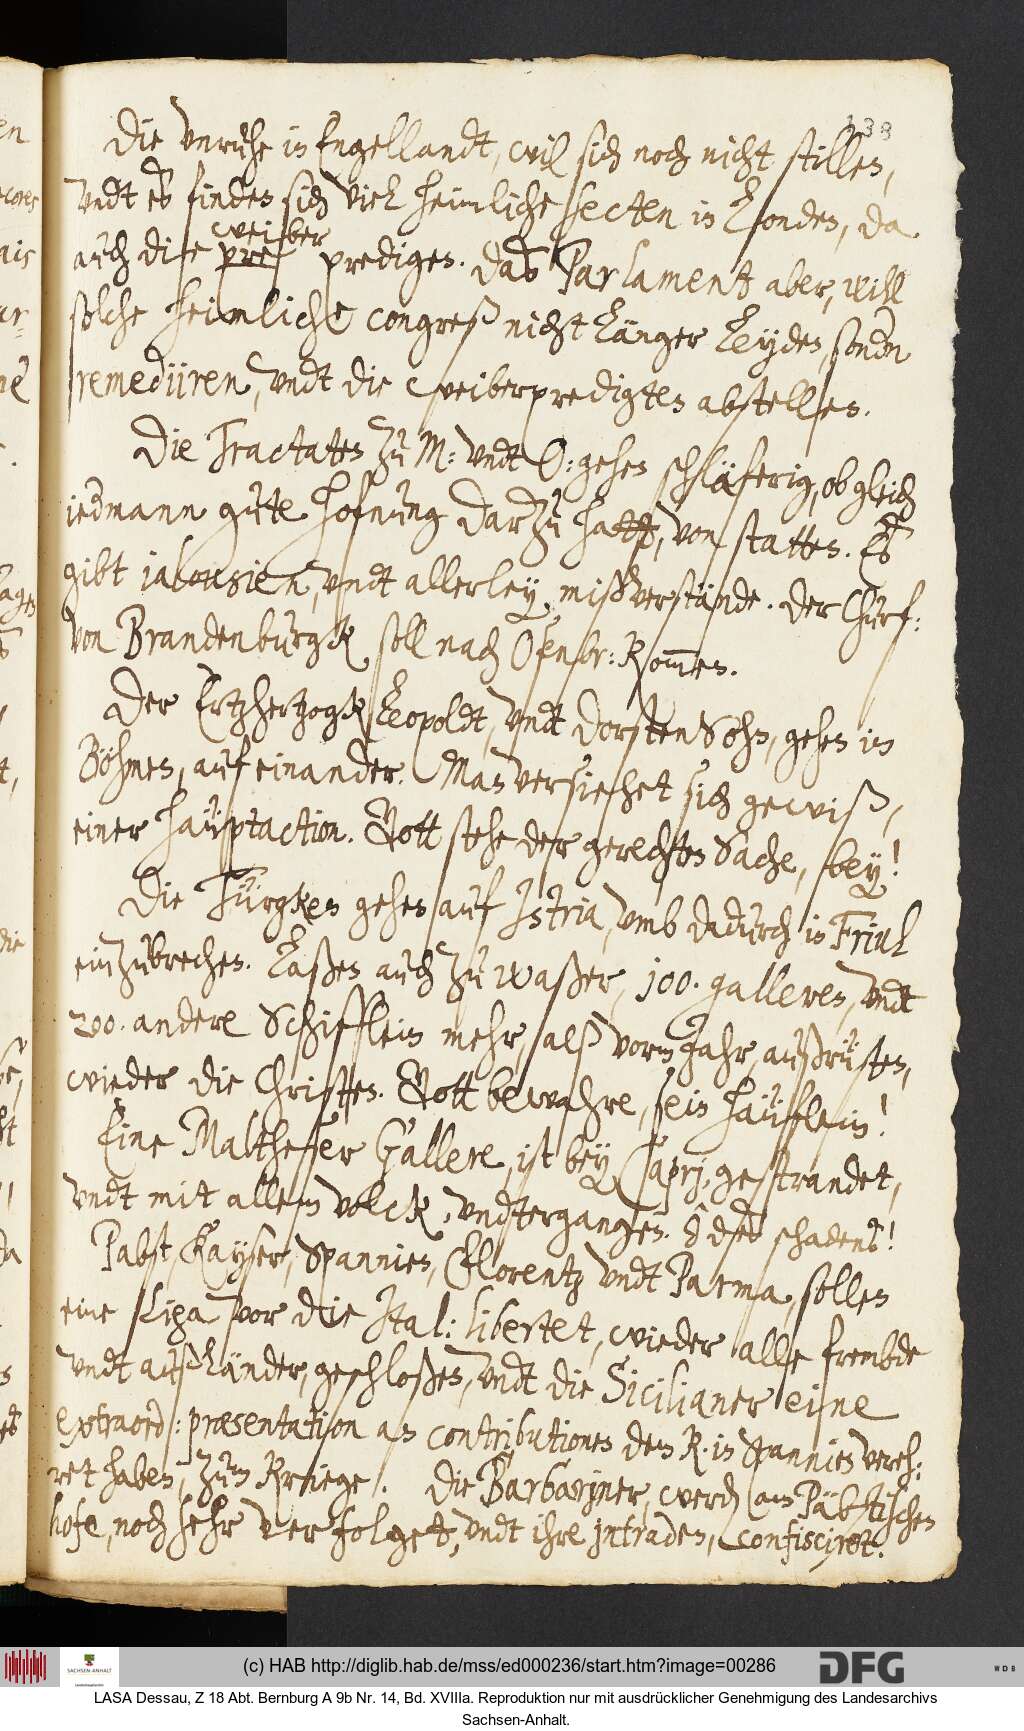 138
Die vnruhe in Engellandt, will sich noch nicht stillen,
vndt es finden sich viel heimliche secten in Londen, da
weiber
auch die pref predigen. Das Parlament aber, will
solche heimliche congreß nicht länger leyden, sondn
remediiren, vndt die weiberpredigten abstellen.
Die Tractaten zu M: vndt O: gehen schläferig, ob gleich
iedmann gute hofnung darzu hatt, von statten. Es
gibt jalousien, vndt allerley mißverstände. Der Churf:
von Brandenburgk soll nach Osenbr: kom̅en.
Der Ertzhertzogk Leopoldt, vndt DorstenSohn, gehen in
Böhmen, auf einander. Man versiehet sich gewiß,
einer haüptaction. Gott stehe der gerechten Sache, bey!
Die Türgken gehen auf Istria, vmb dadurch in Friul
einzubrechen. Laßen auch zu waßer, 100. galleren, vndt
200. andere Schifflein mehr, alß vorm Jahr, außrüsten,
wieder die Christen. Gott bewahre, sein haüfflein!
Eine Maltheser Gallere, ist bey Caprj, gestrandet,
vndt mit allem volck, vndtergangen. ô des schadens!
Pabst, Kayser, Spannien, Florentz vndt Parma, sollen
eine Liga vor die Ital: libertet, wieder alle frembde
vndt außländer, geschloßen, vndt die Sicilianer eine
extraord: præsentation an contributionen dem K. in Spannien vereh:
ret haben, zum Kriege. Die Barbarjner, werdn am Päbstischen
hofe, noch sehr verfolget, vndt ihre jntraden, confisciret.
(c) HAB http://diglib.hab.de/mss/ed000236/start.htm?image=00286
SACHSEN-ANHALT
DFG
WDB
LASA Dessau, Z 18 Abt. Bernburg A 9b Nr. 14, Bd. XVIIIa. Reproduktion nur mit ausdrücklicher Genehmigung des Landesarchivs
Sachsen-Anhalt.